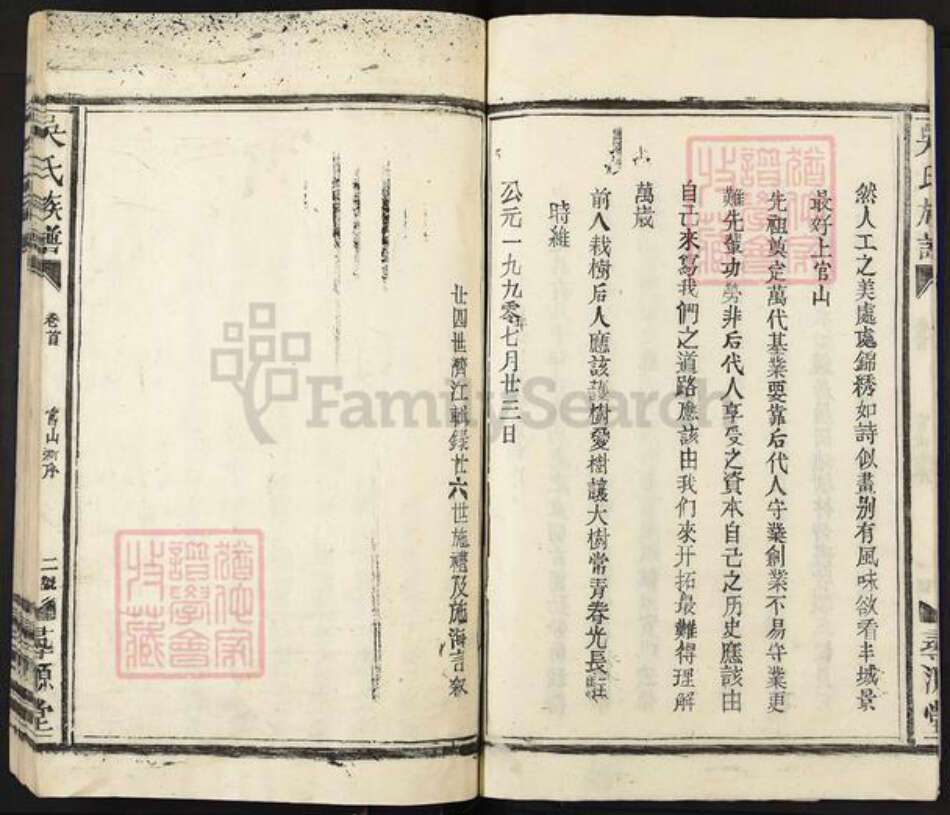 然人工之美處處錦綉如詩似畫別有風味欲看丰城景
最好上官山
先祖奠定萬代基業要靠后代人守業創業不易守業更
難先輩功勞非后代人享受之資本自己之历史應該由
自己來寫我們之道路應該由我们來开拓最難得理解
萬歲
前人栽樹后人應該護樹愛樹讓大樹常青春光長駐
時維
公元一九九零年七月廿三日
廿四世濟江輯錄廿六世施禮及施海言叙
吳氏族譜
卷首
官山
二號
尋源堂
吳氏族譜
尋源堂
猶他家譜學會收藏
猶他家譜學會收藏
FamilySearch